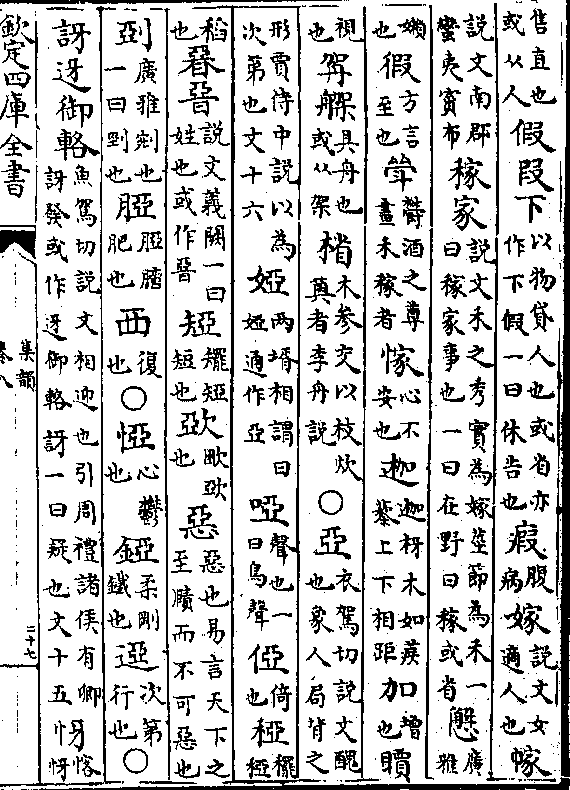 售直也或从人假叚下以物貸人也或省亦作下假一曰休告也瘕腹病嫁說文女適人也幏
說文南郡蠻夷賨布稼家說文禾之秀實為稼莖節為禾一曰稼家事也一曰在野曰稼或省㦴廣雅
嬾也徦方言至也斝鬱酒之尊畫禾稼者㤎心不安也迦迦枒木如蒺藜上下相距加增也
視也䯊具舟也或从架楷木参交以枝炊䉛者李舟說〇亞衣駕切說文醜也象人局背之
形賈侍中說以為次第也文十六婭两壻相謂曰婭通作亞啞聲也一曰鳥聲俹倚也稏䆉稏
稻也晉說文義闕一曰姓也或作晉䅉短也歐也惡惡也易言天下之至賾而不可惡也
廣雅剄也一曰剄也腛腯肥也襾復也〇心鬱也錏柔剛鐵也逜次第行也〇
訝迓御輅魚駕切說文相迎也引周禮諸侯有卿訝發或作迓御輅訝一曰疑也文十五
欽定四庫全書
集韻
卷八
二十七